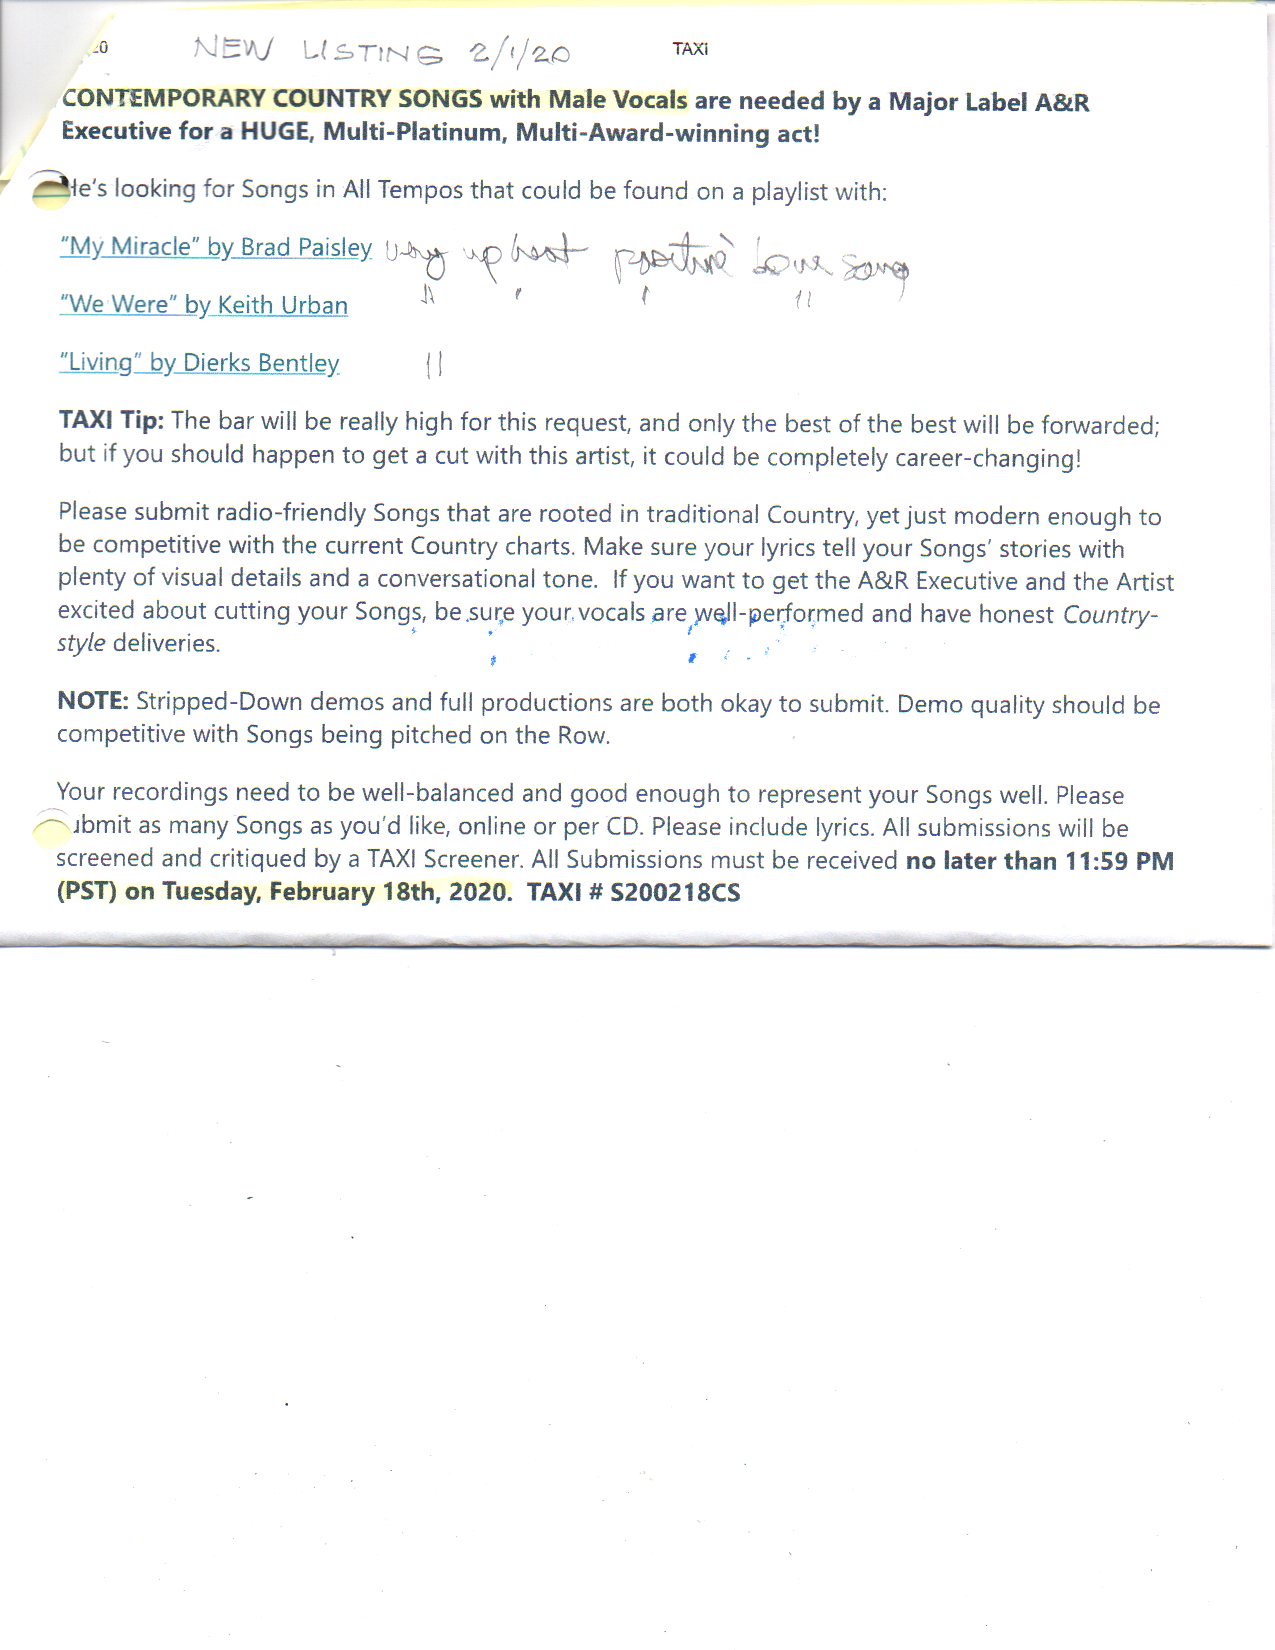 20 NEW LISTING 2/1/20 TAXI
CONTEMPORARY COUNTRY SONGS with Male Vocals are needed by a Major Label A&R
Executive for a HUGE, Multi-Platinum, Multi-Award-winning act!
He's looking for Songs in All Tempos that could be found on a playlist with:
"My Miracle" by Brad Paisley very upbeat positive love song
"We Were" by Keith Urban " " " "
"Living" by Dierks Bentley "
TAXI Tip: The bar will be really high for this request, and only the best of the best will be forwarded;
but if you should happen to get a cut with this artist, it could be completely career-changing!
Please submit radio-friendly Songs that are rooted in traditional Country, yet just modern enough to
be competitive with the current Country charts. Make sure your lyrics tell your Songs' stories with
plenty of visual details and a conversational tone. If you want to get the A&R Executive and the Artist
excited about cutting your Songs, be sure your vocals are well-performed and have honest Country-
style deliveries.
NOTE: Stripped-Down demos and full productions are both okay to submit. Demo quality should be
competitive with Songs being pitched on the Row.
Your recordings need to be well-balanced and good enough to represent your Songs well. Please
submit as many Songs as you'd like, online or per CD. Please include lyrics. All submissions will be
screened and critiqued by a TAXI Screener. All Submissions must be received no later than 11:59 PM
(PST) on Tuesday, February 18th, 2020. TAXI # S200218CS